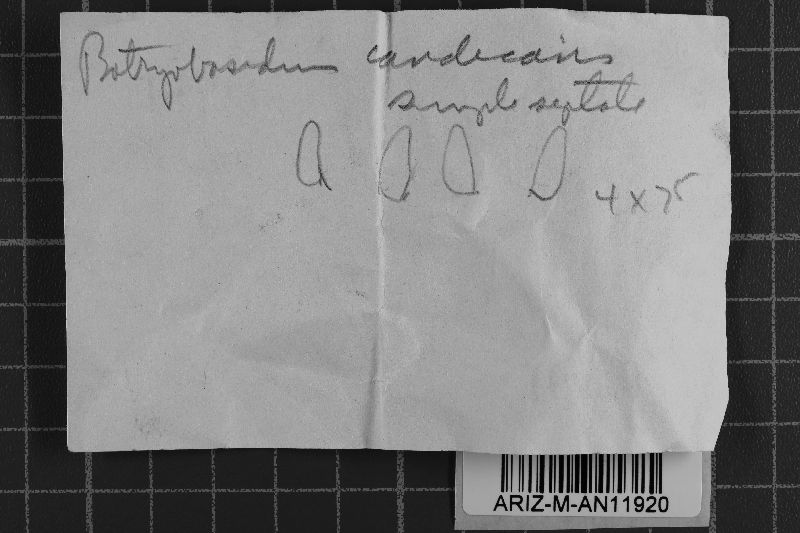 Botryobasidium candicans
simple septate
4 X 75
ARIZ-M-AN11920